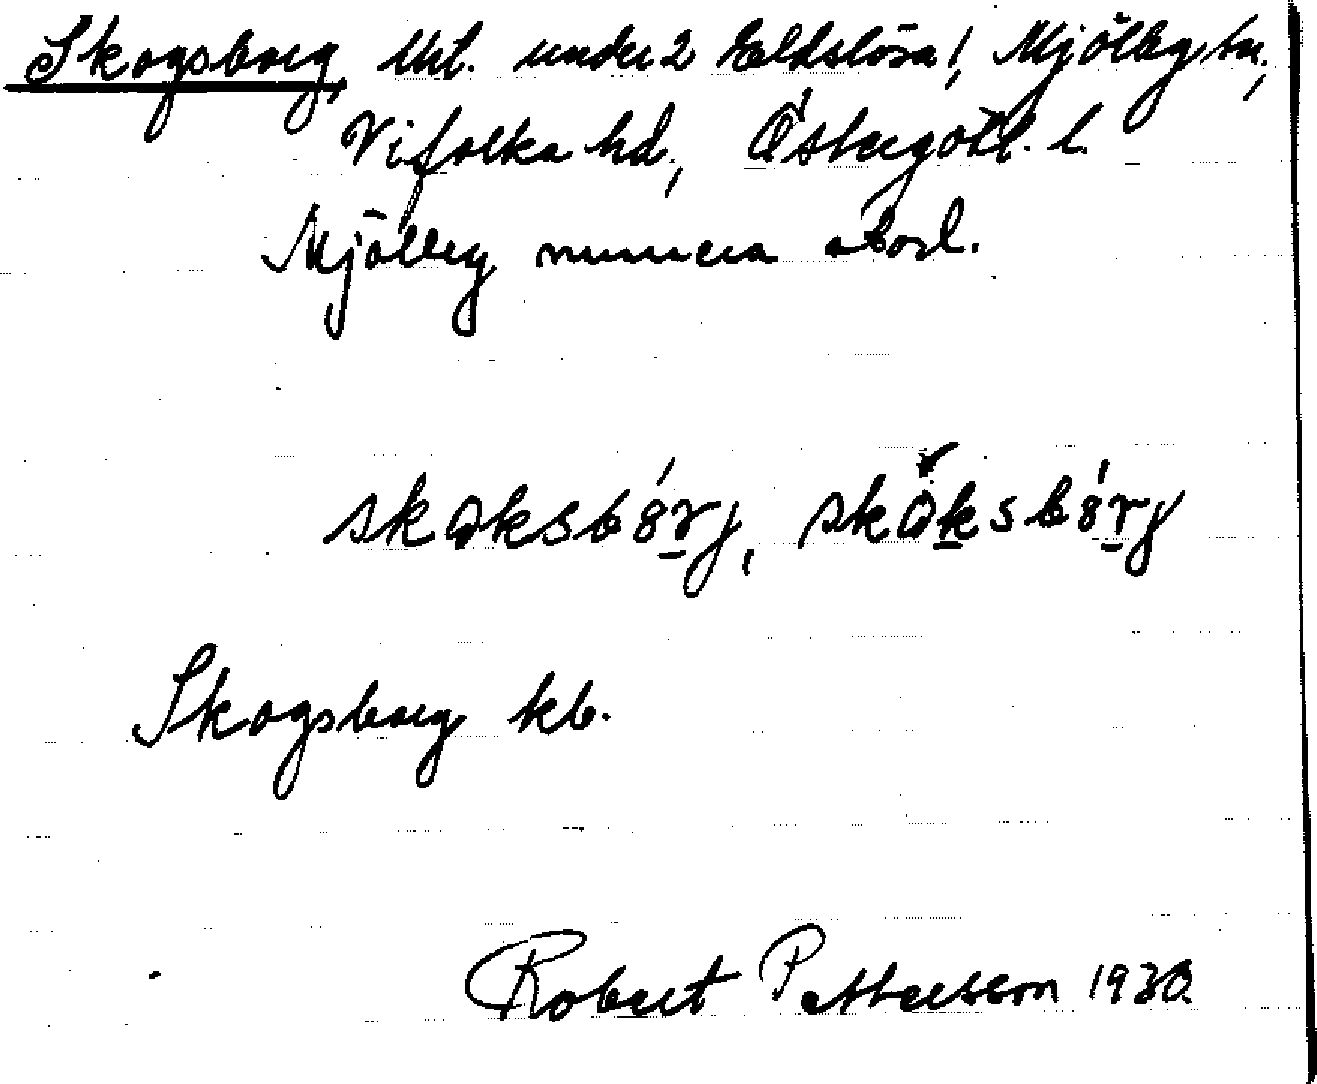 Skogsborg, Utl. under 2 Eldslösa!, Mjölby sn.,
Vifolka hd, Östergötl. l.
Mjölby numera stad.
skoksbórj, skǒksbórj
Skogsborg kb.
Robert Pettersson 1930.